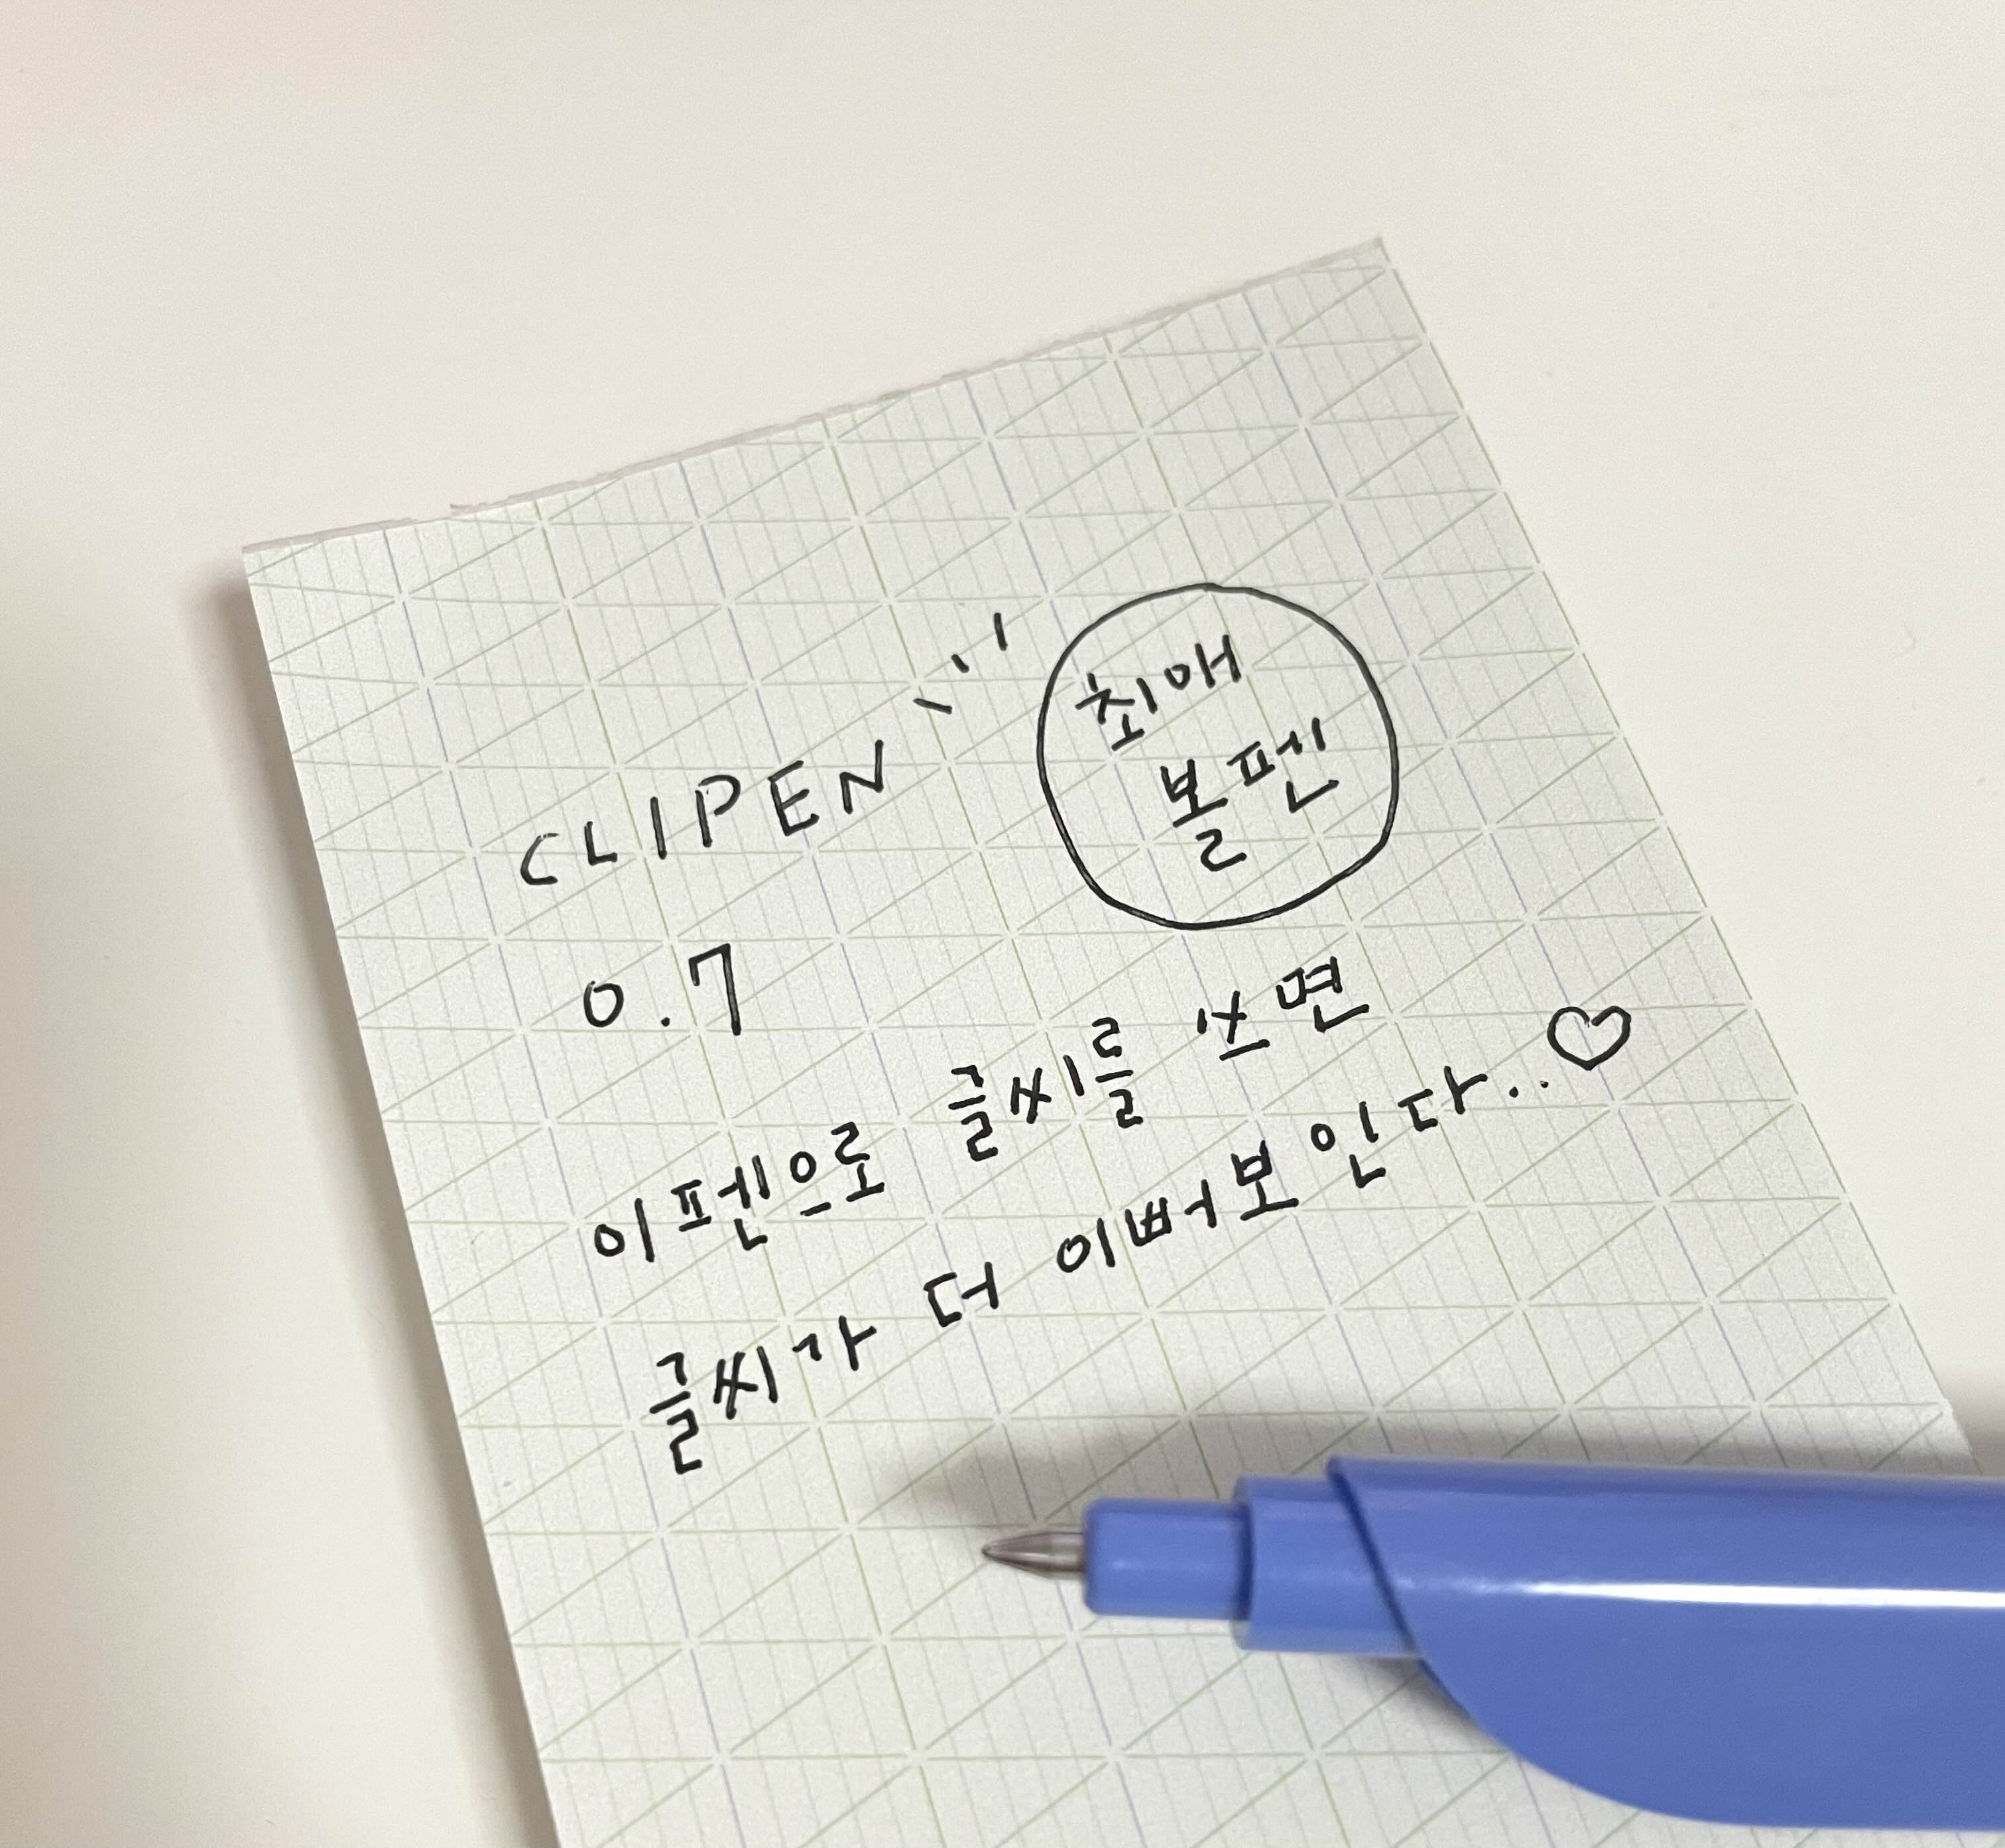 CLIPEN
0.7
최애
볼펜
이펜으로 글씨를 쓰면
글씨가 더 이뻐보인다..♡